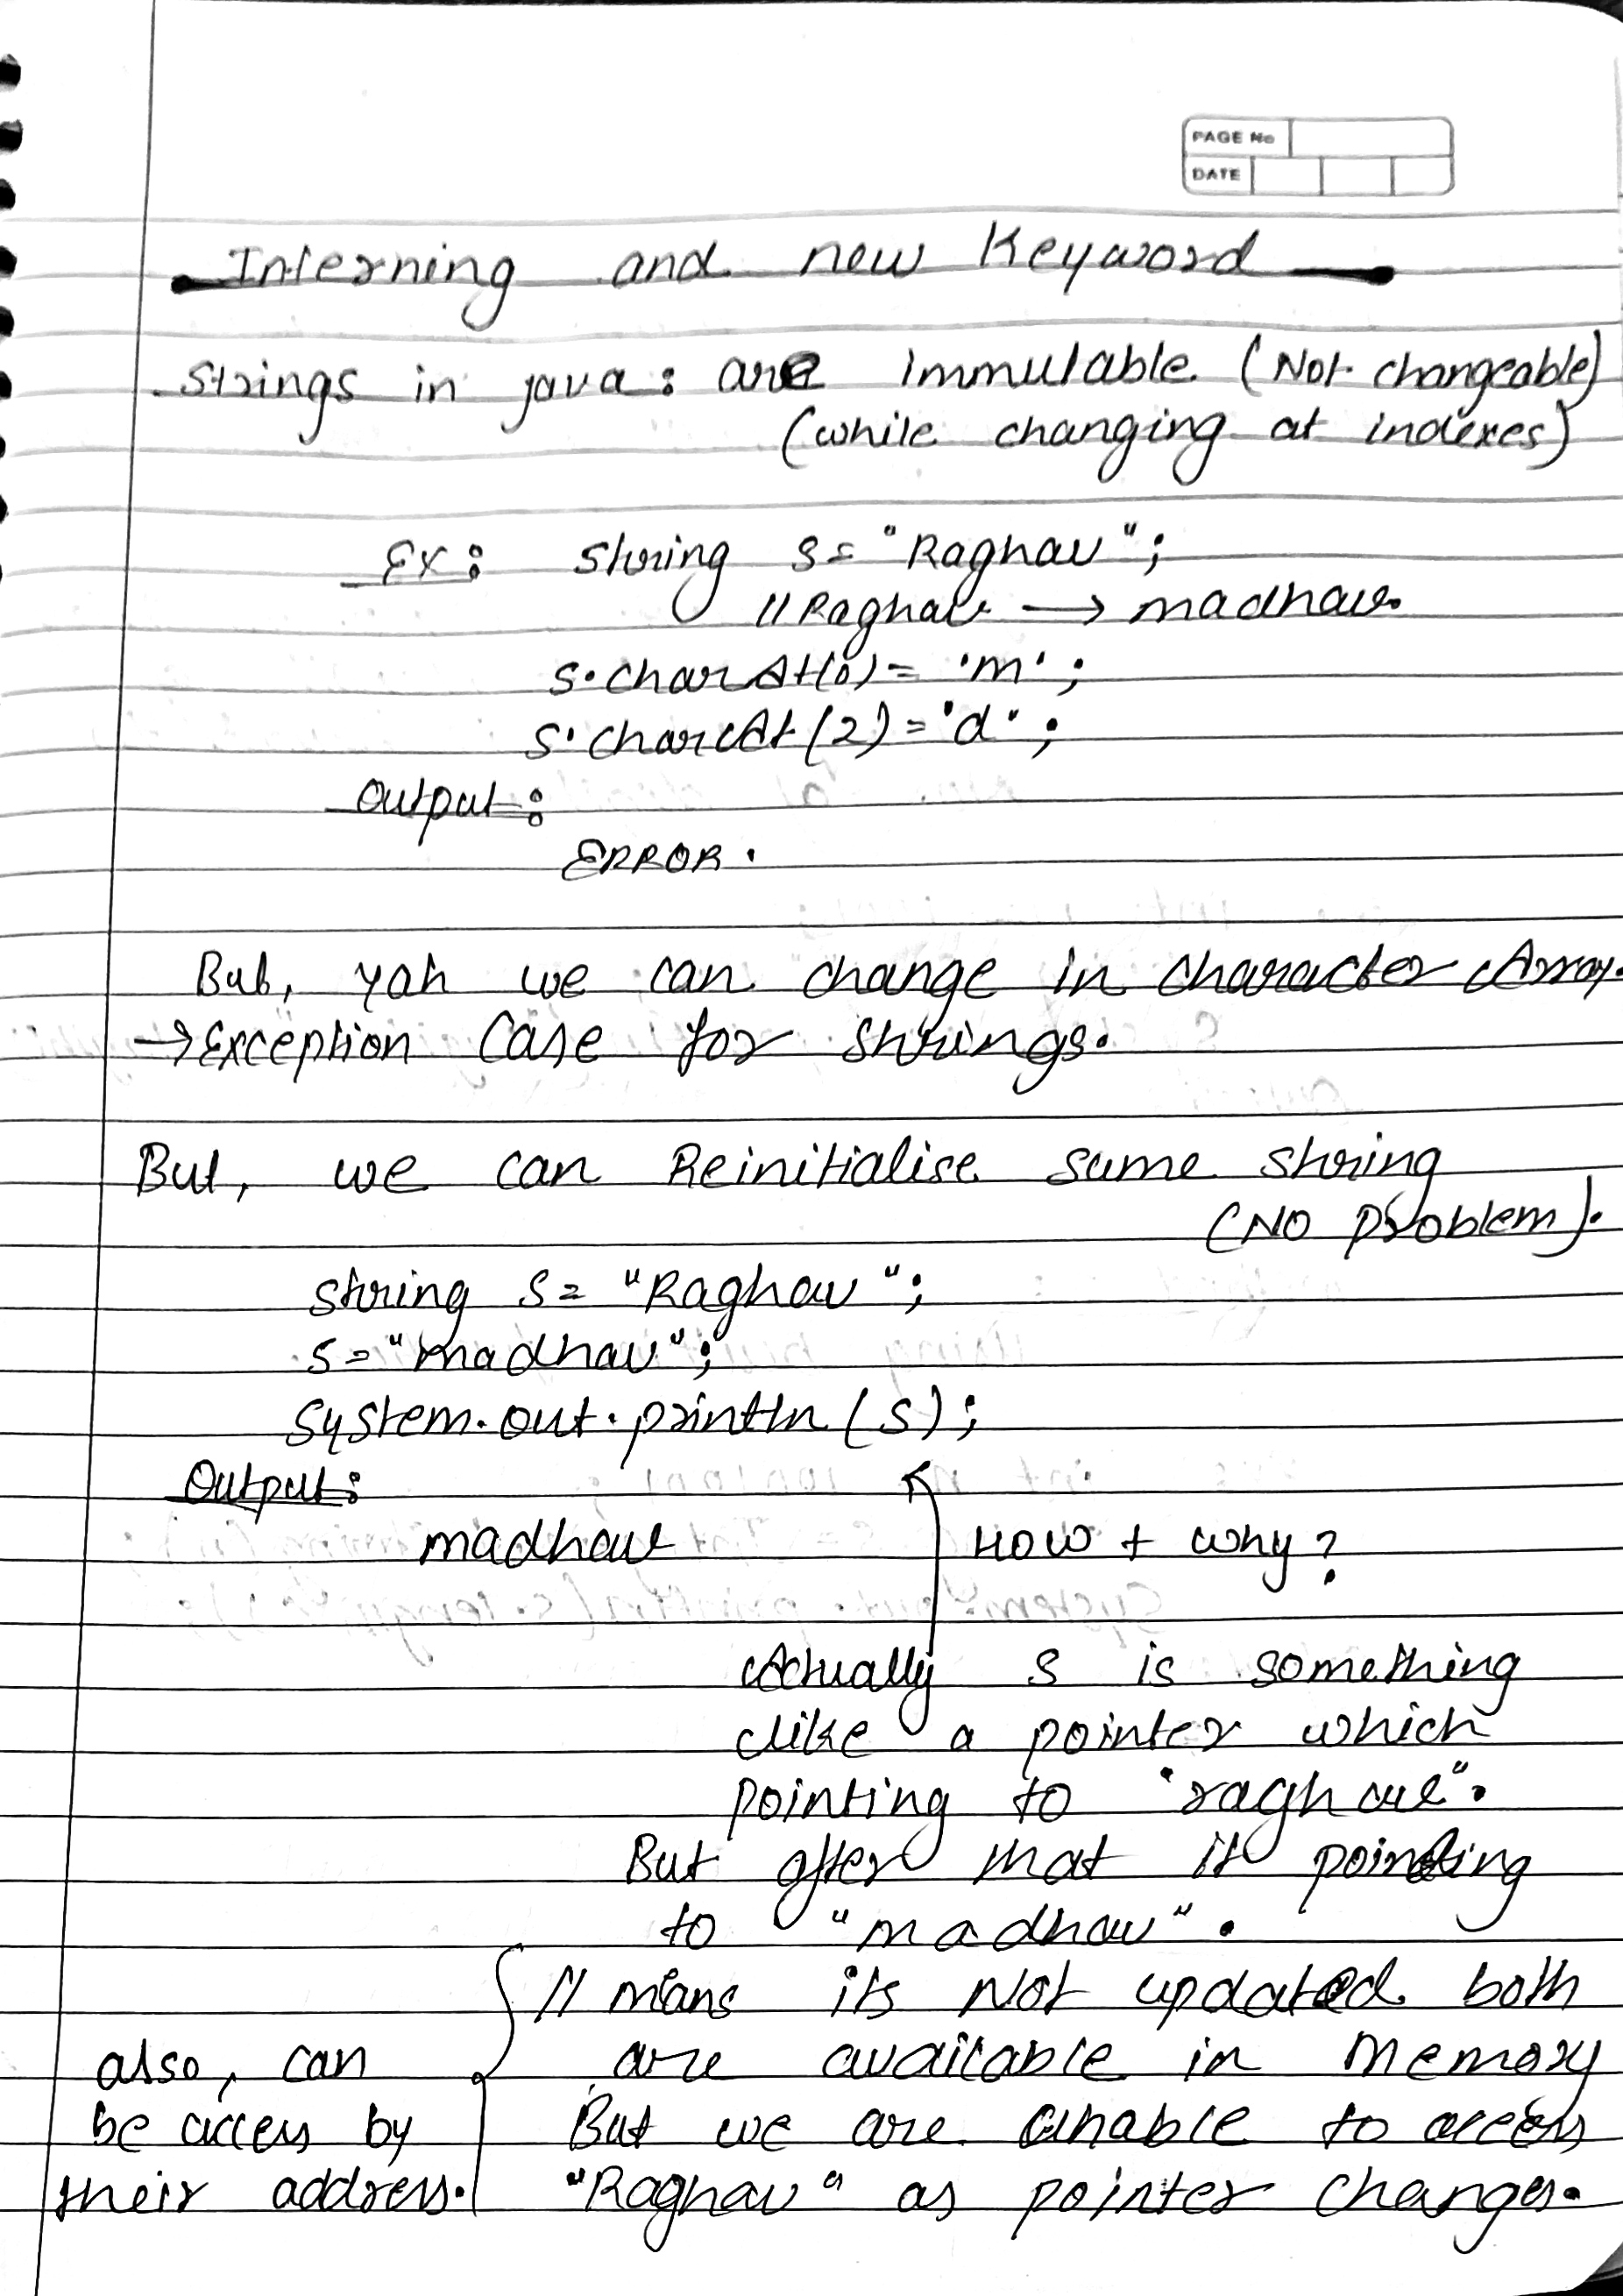 PAGE No
DATE
Interning and new Keyword
Strings in java: are immutable. (Not changeable)
(while changing at indexes)
Ex: string s = "Raghav";
// Raghav → madhav.
s.charAt(0) = 'm';
s.charAt(2) = 'd';
Output:
ERROR.
But, yah we can change in character Array.
→ Exception Case for strings.
But, we can Reinitialise same string
(NO problem).
string s = "Raghav";
s = "madhav";
system.out.println(s);
Output:
madhav How + why?
Actually s is something
like a pointer which
pointing to "raghav".
But after that it pointing
to "madhav".
// means its Not updated both
are available in memory
But we are unable to access
"Raghav" as pointer changes.
also, can
be access by
their address.